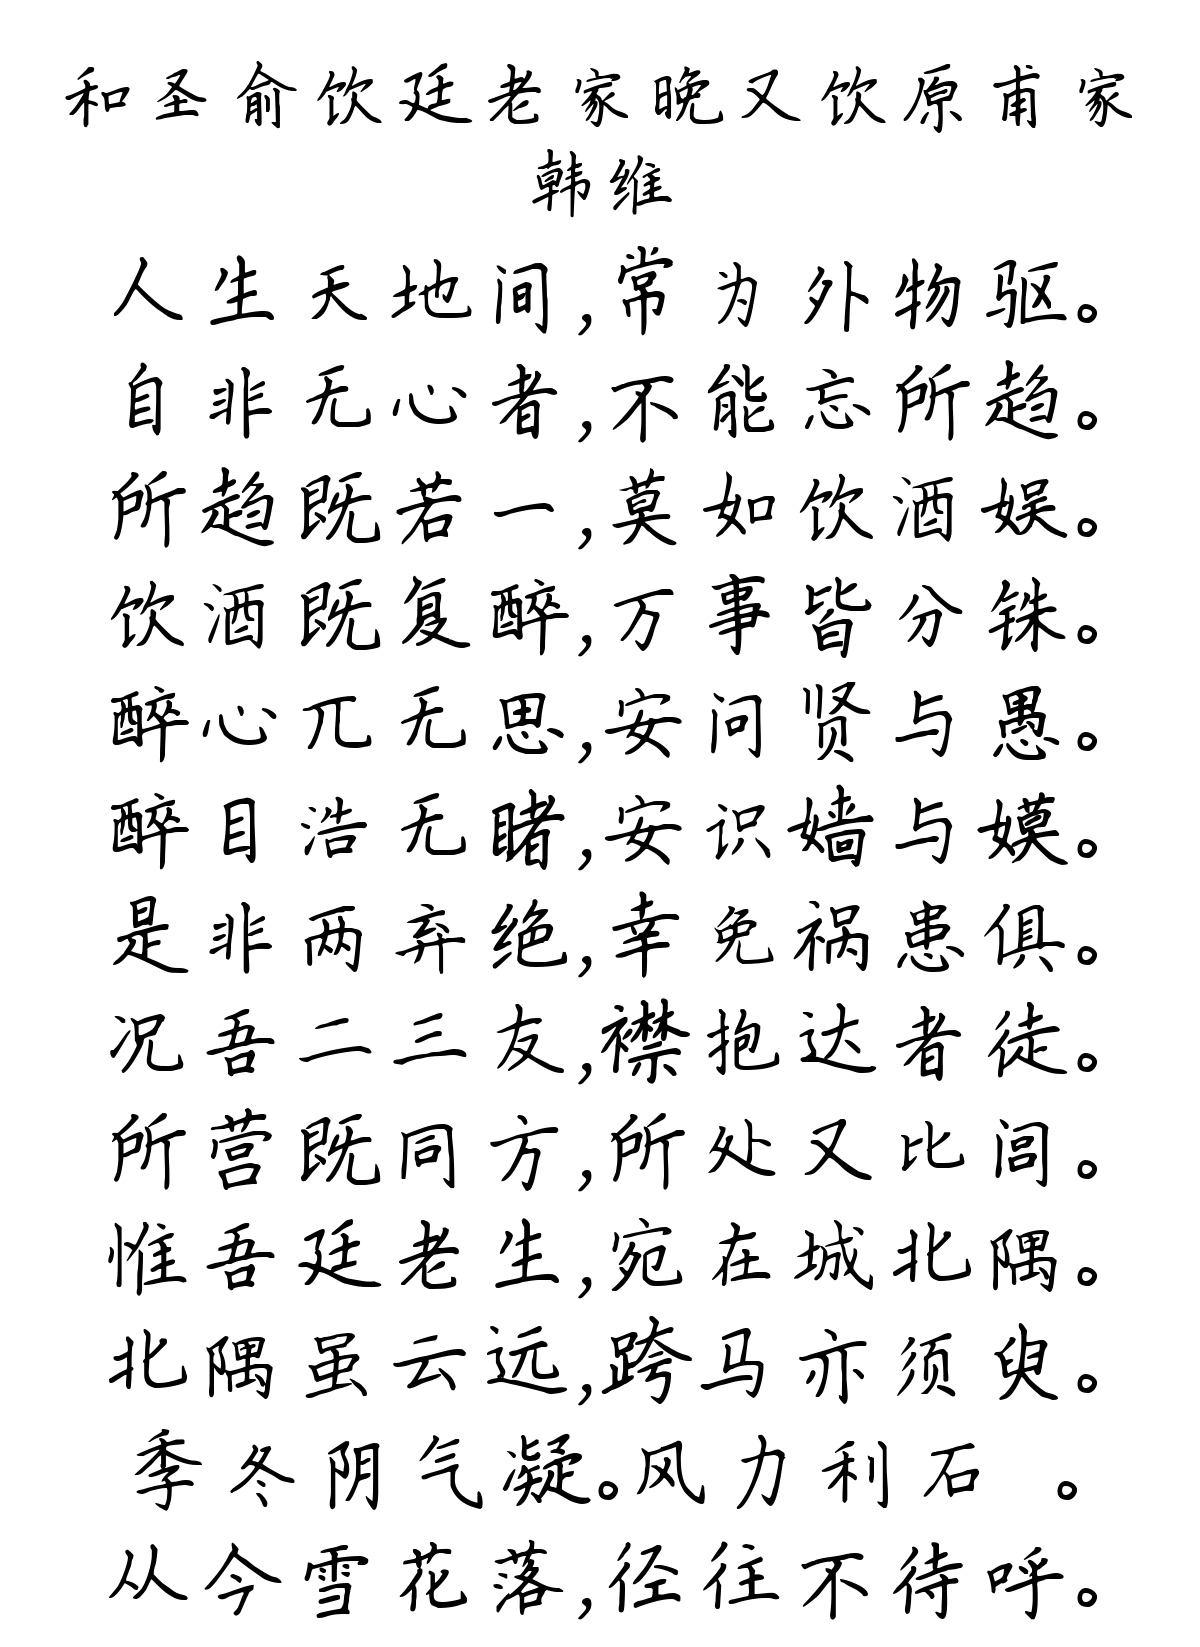 和圣俞饮廷老家晚又饮原甫家
韩维
人生天地间,常为外物驱。
自非无心者,不能忘所趋。
所趋既若一,莫如饮酒娱。
饮酒既复醉,万事皆分铢。
醉心兀无思,安问贤与愚。
醉目浩无睹,安识嫱与嫫。
是非两弃绝,幸免祸患俱。
况吾二三友,襟抱达者徒。
所营既同方,所处又比闾。
惟吾廷老生,宛在城北隅。
北隅虽云远,跨马亦须臾。
季冬阴气凝。风力利石 。
从今雪花落,径往不待呼。